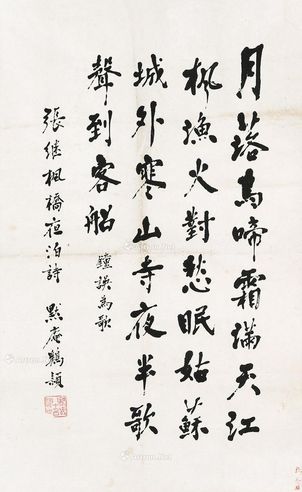 月落烏啼霜滿天江
楓漁火對愁眠姑蘇
城外寒山寺夜半歌
聲到客船
鐘誤為歌
張继楓橋夜泊詩 默庵鶴題